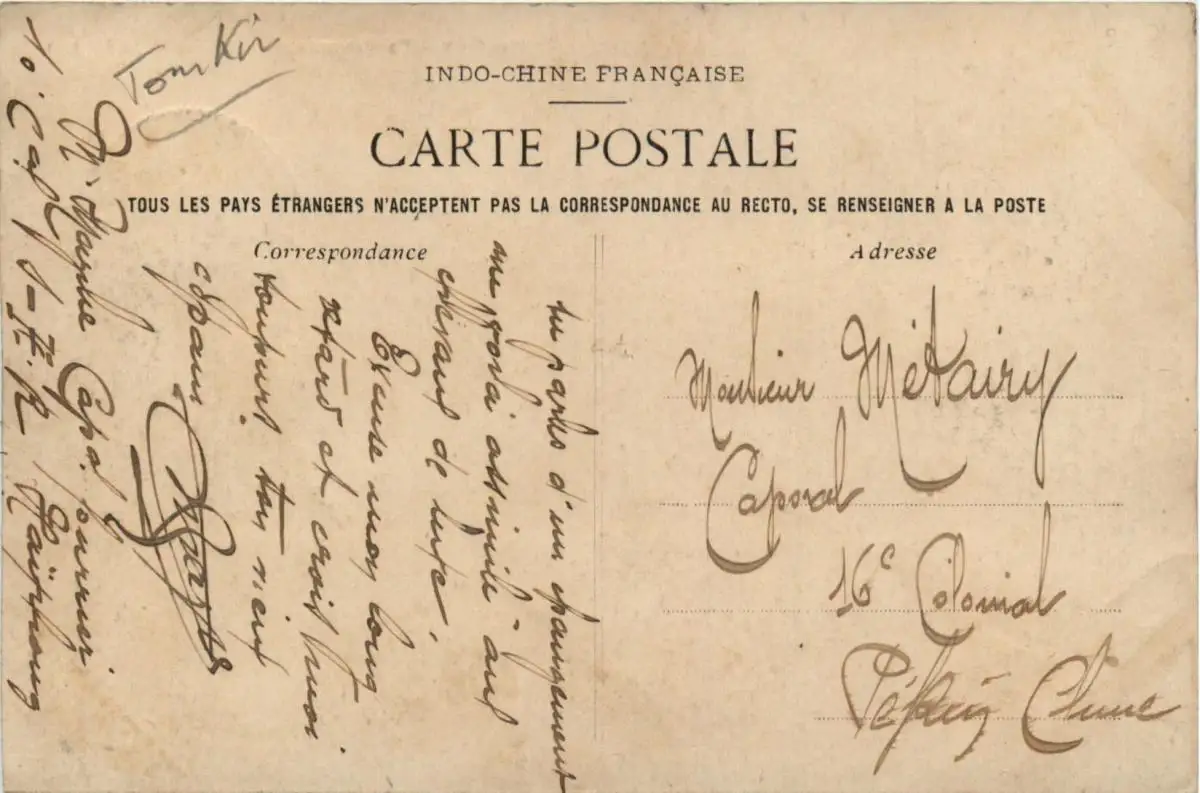 Tomkin
INDO-CHINE FRANÇAISE
CARTE POSTALE
TOUS LES PAYS ÉTRANGERS N'ACCEPTENT PAS LA CORRESPONDANCE AU RECTO, SE RENSEIGNER A LA POSTE
Correspondance
tu parles d'un changement
me voici assimilé aux
chevaux de luxe.
Excuse mon long
retard et crois moi
toujours ton vieux
copain
Capal fourrier
Haïphong
Adresse
Monsieur Métairy
Caporal
16e Colonial
Pékin Chine